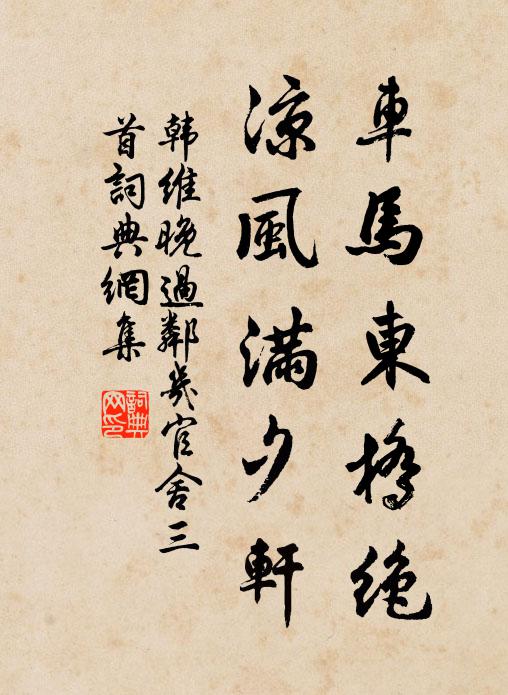 車馬東橋絶
涼風滿夕軒
韩維晚過鄰幾官舍三
首詞典網集
詞典
网印